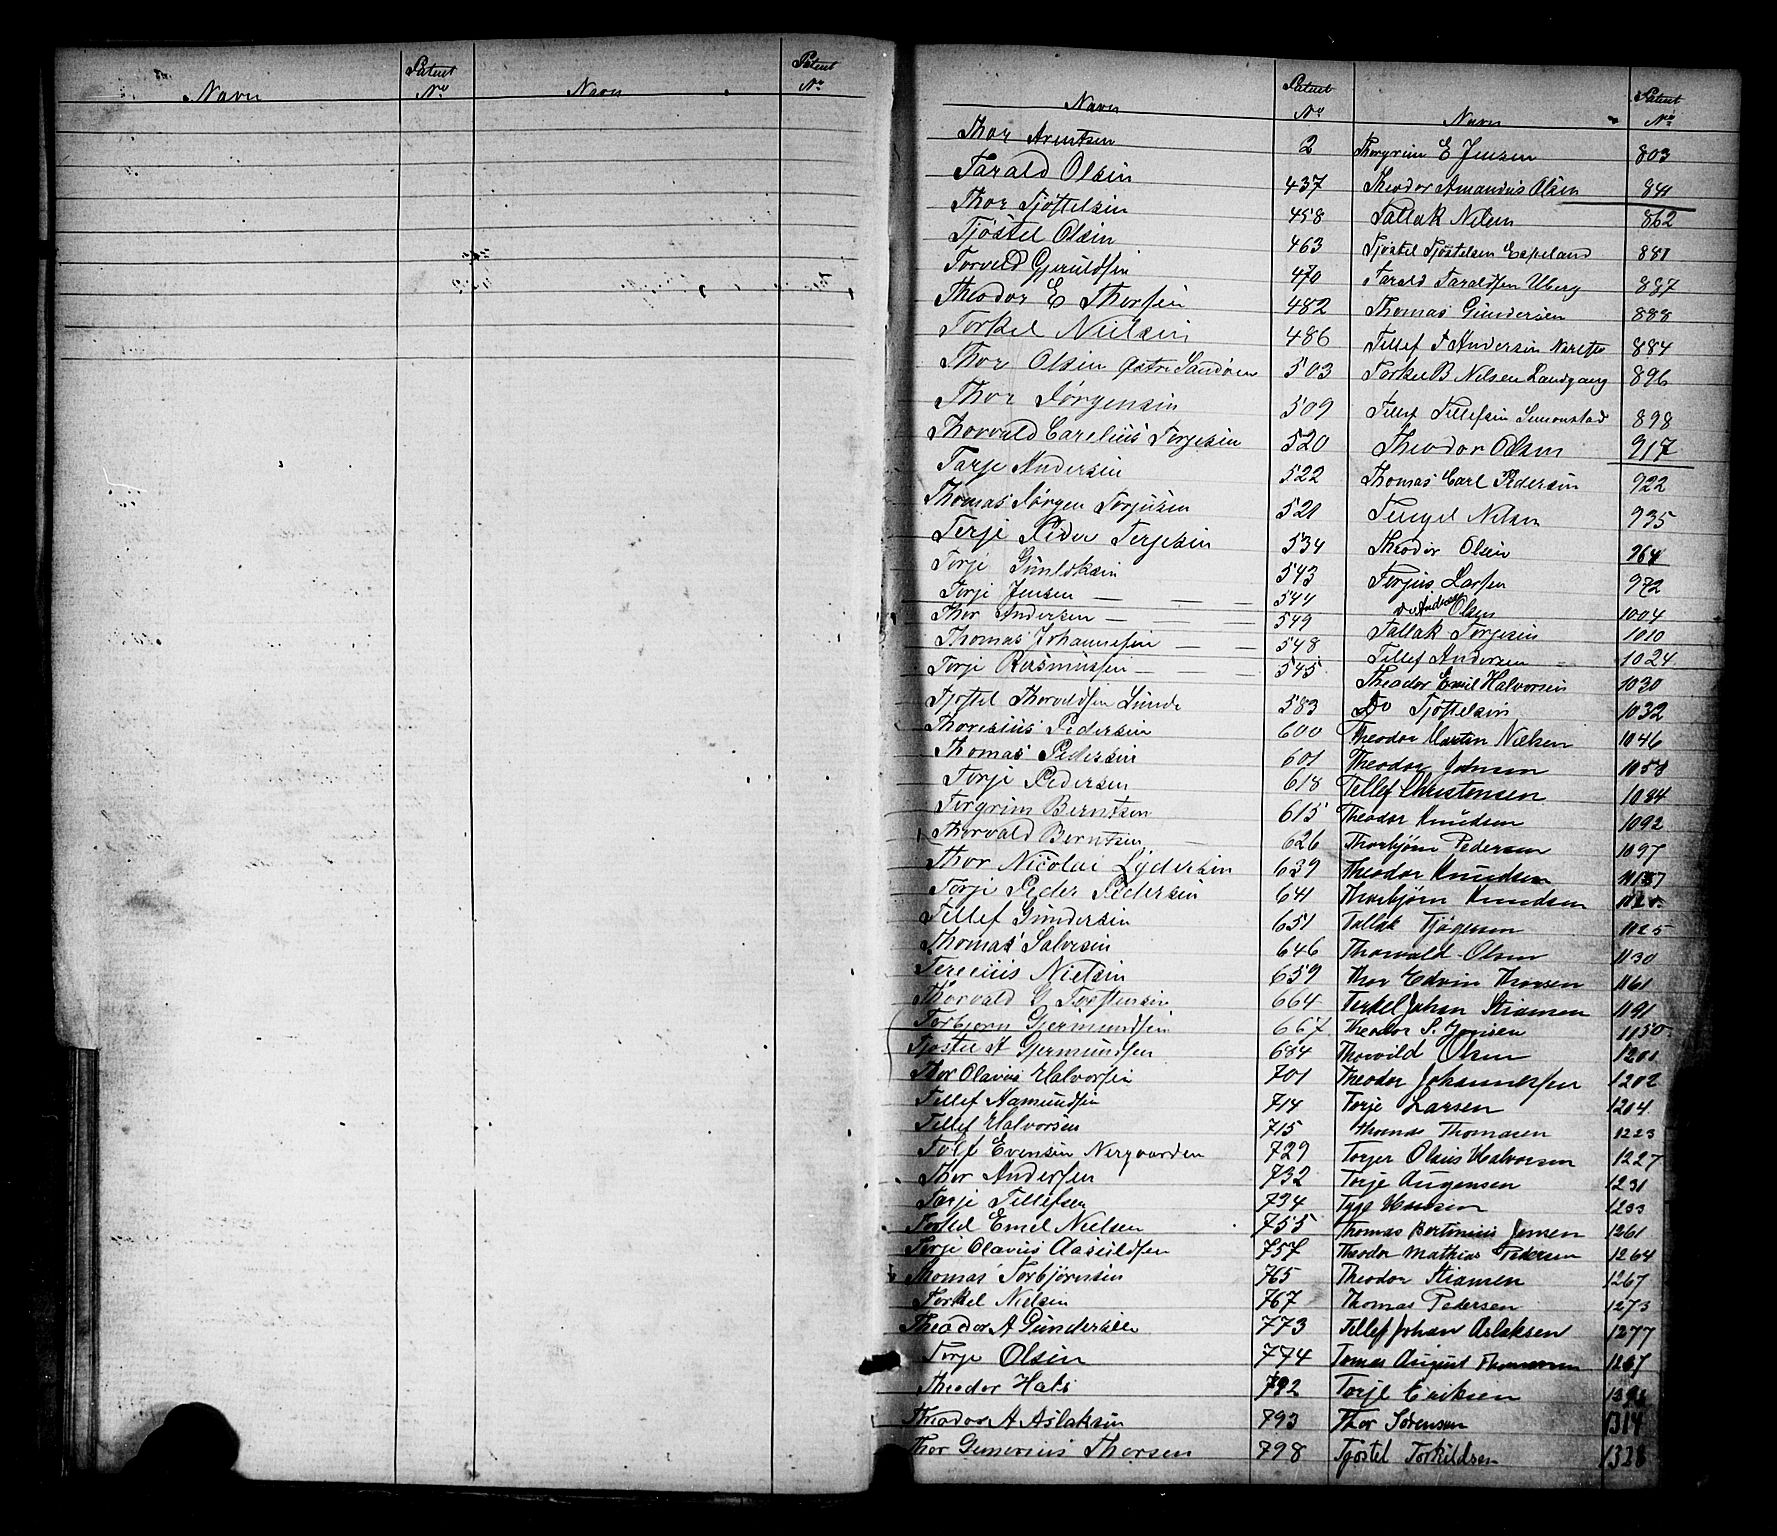 Navn Patent No Navn Patent No
Navn Patent No Navn Patent No
Thor Arntsen 2
Tarald Olsen 437
Thor Tjøstelsen 458
Tjøstel Olsen 463
Torvald Gjeruldsen 470
Theodor E Thorsen 482
Torkel Nielsen 486
Thor Olsen Østre Sandøen 503
Thor Jørgensen 509
Thorvald Carelius Terjesen 520
Tarje Andersen 522
Thomas Jørgen Torjusen 521
Terje Peder Terjesen 534
Torje 543
Terje Jensen 544
Thor Andersen 549
Thomas Johannesen 548
Terje Rasmussen 545
Tjøstel Thorvaldsen Lunde 583
Thoresius Pedersen 600
Thomas Pedersen 601
Terje Pedersen 618
Torgrim Berntsen 615
Thorvald Berntsen 626
Thor Nicolai Lydersen 639
Terje Peder Pedersen 641
Tellef Gundersen 651
Thomas Salvesen 646
Terecius Nielsen 659
Thorvald G Torstensen 664
Torbjørn Gjermundsen 667
Tjøstel A Gjermundsen 684
Thor Olavus Halvorsen 701
Tellef Aamundsen 714
Tellef Halvorsen 715
Tolf Evensen Nergaarden 729
Thor Andersen 732
Tarje Tellefsen 734
Torkel Emil Nielsen 755
Terje Olavus Aasuldsen 757
Thomas Torbjørnsen 765
Torkel Nielsen 767
Theodor A Gundersen 773
Terje Olsen 774
Theodor Hals 792
Theodor A Aslaksen 793
Thor Gunerius Thorsen 798
Thorgrim E Jensen 803
Theodor Amandus Olsen 841
Tallak Nilsen 862
Tjøstel Tjøstelsen Espeland 881
Tarald Taraldsen Uberg 887
Thomas Gundersen 888
Tellef T Andersen 884
Torkel B Nilsen Landgang 896
Tellef Tellefsen Simonstad 898
Theodor Olsen 917
Thomas Carl Pedersen 922
Tengel Nilsen 935
Theodor Olsen 964
Terjus Larsen 972
Do Andreas Olsen 1004
Tallak Terjesen 1010
Tellef Andersen 1024
Theodor Emil Halvorsen 1030
Do Tjøstelsen 1032
Theodor Martin Nielsen 1046
Theodor Johnsen 1058
Tellef Christensen 1084
Theodor Knudsen 1092
Thorbjørn Pedersen 1097
Theodor Knudsen
Thorbjørn Knudsen
Tallak Tjøgersen 1125
Thorvald Olsen 1130
Thor Edvin Thorsen 1161
Terkel Johan Stiansen 1191
Theodor S. Jonsen 1150
Thorvild Olsen 1201
Theodor Johannessen 1202
Terje Larsen 1204
Thomas Thomasen 1223
Torger Olaus Halvorsen 1227
Torje Augensen 1231
Tyge Hansen 1233
Thomas Bertinius Jensen 1261
Theodor Mathias Pedersen 1264
Theodor Stiansen 1267
Thomas Pedersen 1273
Tellef Johan Aslaksen 1277
Tomas August Thomassen
Torje Eriksen
Thor Sørensen 1314
Tjøstel Torkildsen 1328